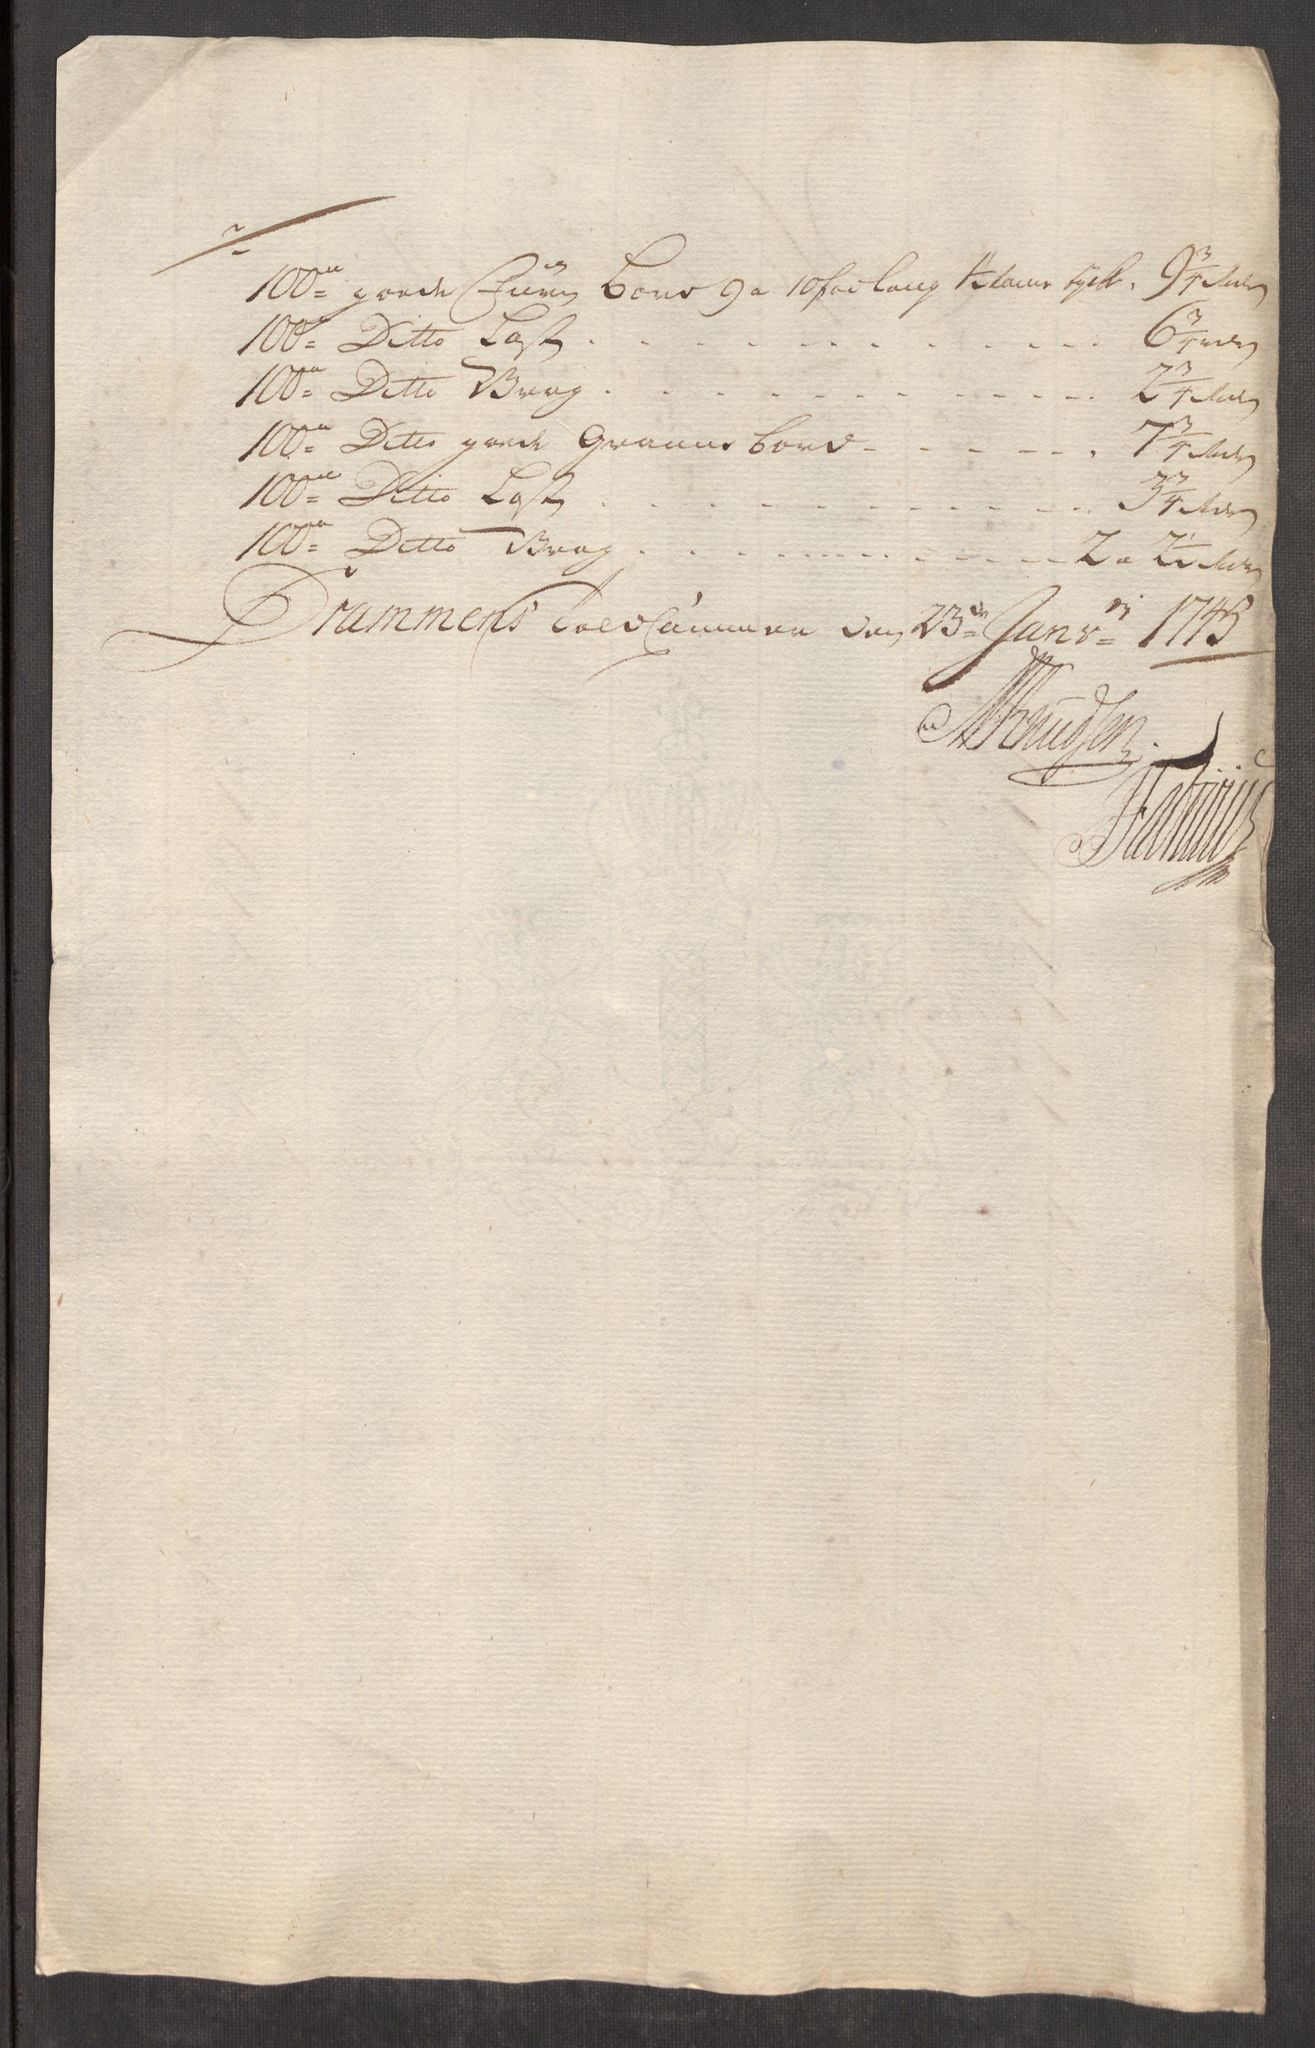 100de goede Furen Bord 9 a 10 fod lang tyck . 9 3/4 Rdr
100de Ditto Last . . . . . . . . . . . . 6 3/4 Rdr
100de Ditto Vrag . . . . . . . . . . . . 2 3/4 Rdr
100de Ditto goede Granne bord - - - - - . 7 3/4 Rdr
100de Ditto Last . . . . . . . . . . . . 3 3/4 Rdr
100de Ditto Vrag . . . . . . . . . . . . 2 a 2 1/2 Rdr
Drammens Told Cammer den 23de Janvr 1743
Knudsen